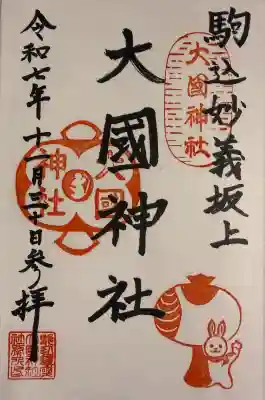 駒込妙義坂上
大國神社
大國神社
大國
神社
令和七年十一月三十日参拝